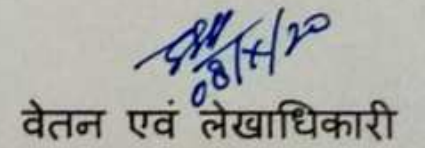 08/x/20
वेतन एवं लेखाधिकारी